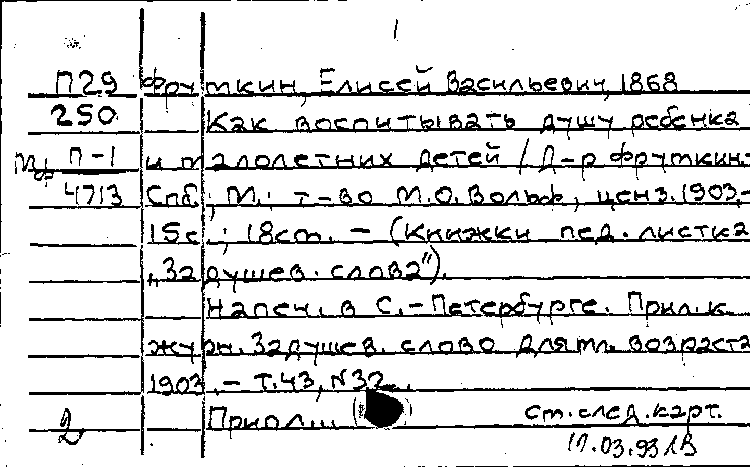 1
П29 Фруткин, Елисей Васильевич, 1868
250 Как воспитывать душу ребенка
Мф П-1 и малолетних детей / Д-р Фруткин.-
4713 Спб.; М.: т-во М.О. Вольф, ценз. 1903.-
15с.; 18см. - (Книжки пед. листка
"Задушев. слова").
Напеч. в С.-Петербурге. Прил. к
журн. Задушев. слово для мл. возраста
1903. - Т.43, N32
2 ст. след. карт.
17.03.93